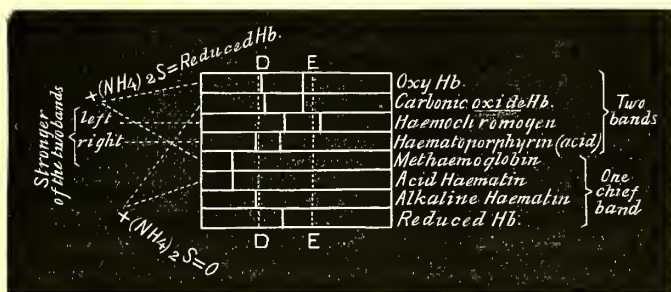 +(NH4)2S=Reduced Hb.
Stronger
of the two bands
left
right
+(NH4)2S=O
D E
Oxy Hb
Carbonic oxide Hb.
Haemochromogen
Haematoporphyrin (acid)
Methaemoglobin
Acid Haematin
Alkaline Haematin
Reduced Hb.
D E
Two
bands
One
chief
band